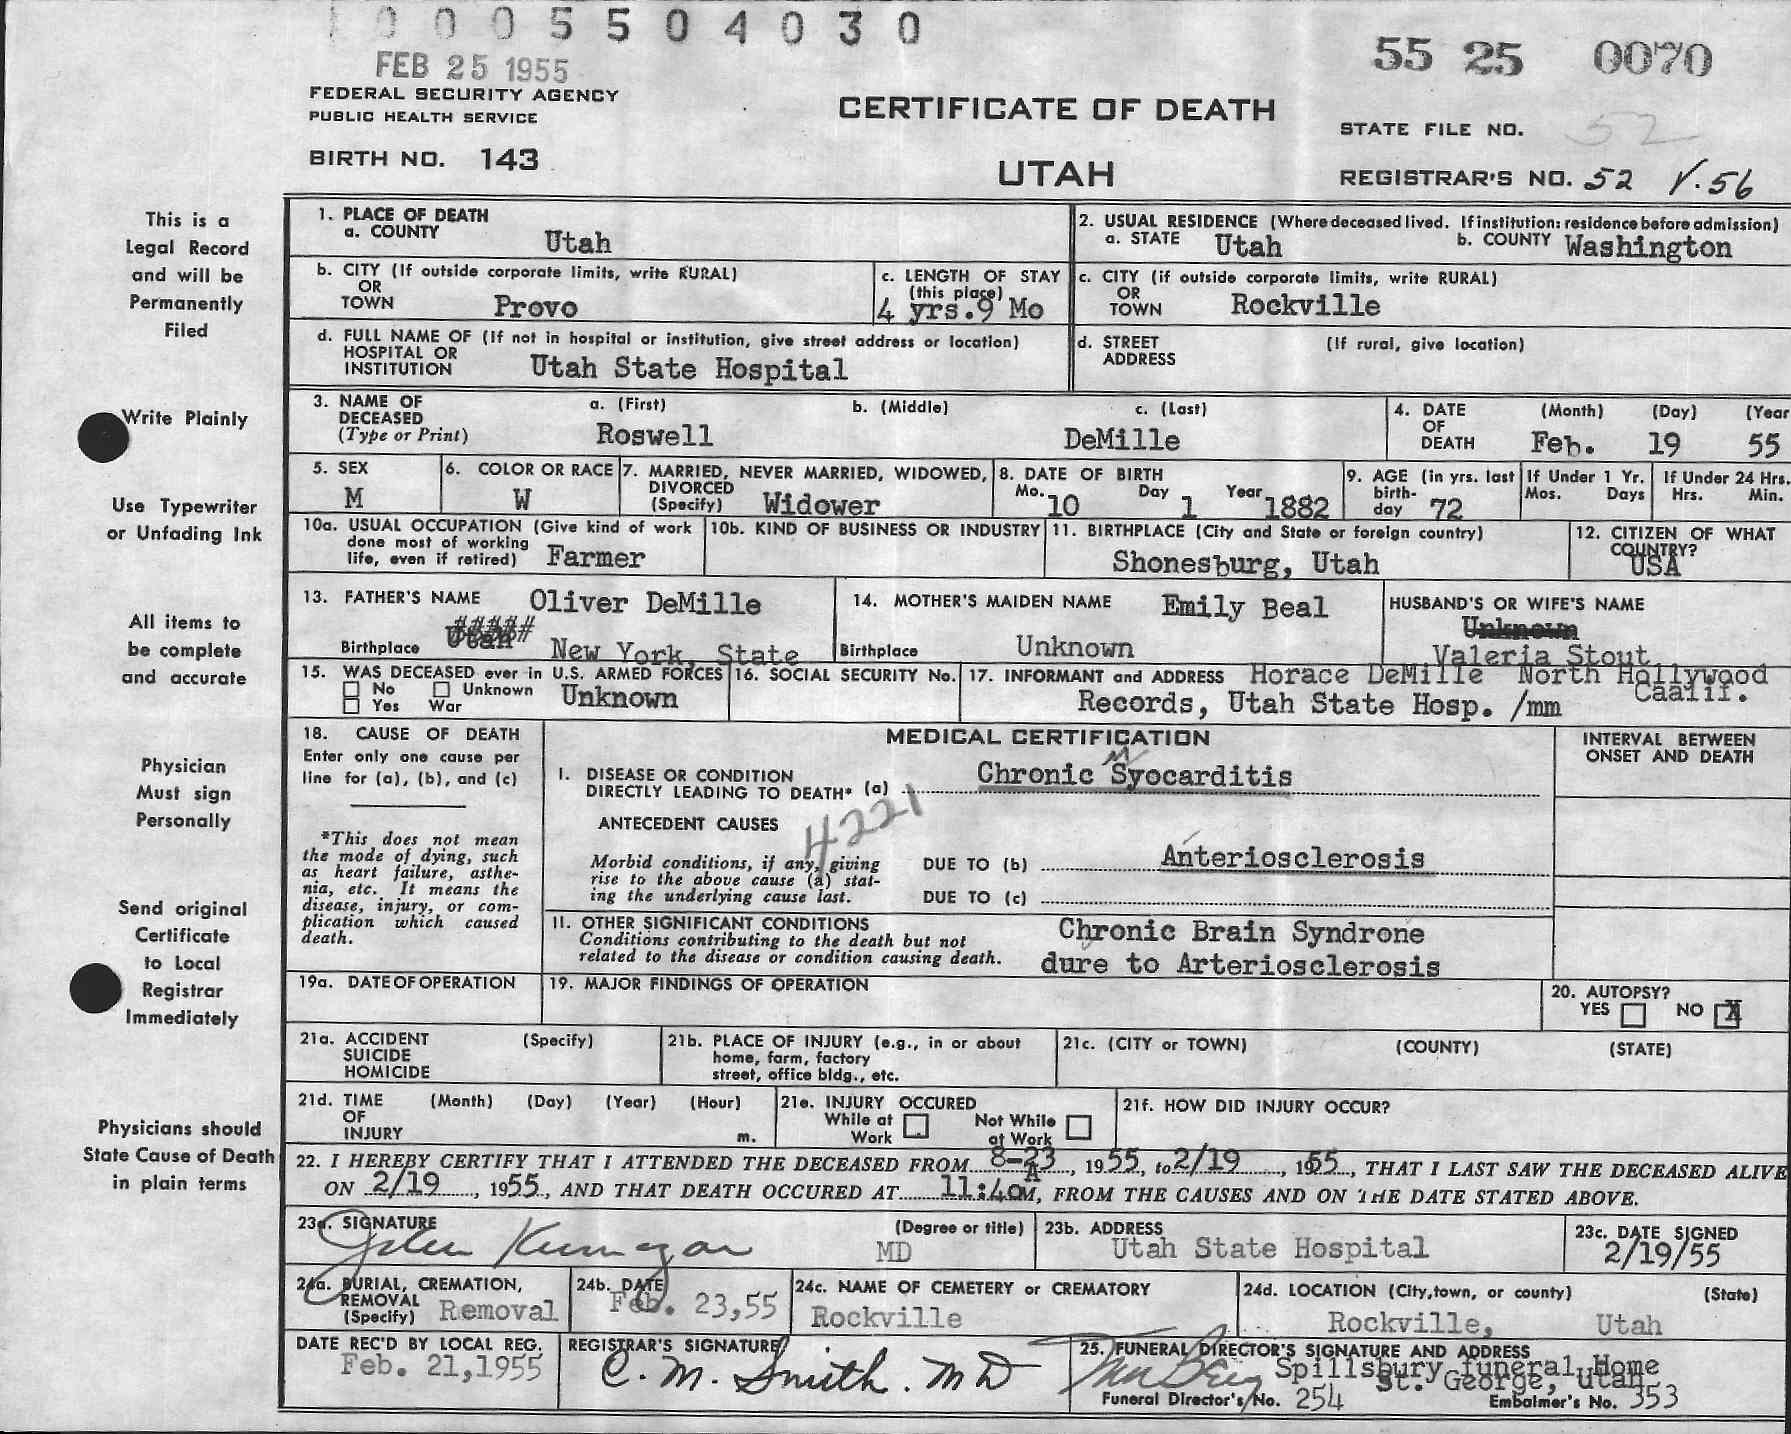 1 0 0 0 5 5 0 4 0 3 0
FEB 25 1955
55 25 0070
FEDERAL SECURITY AGENCY
PUBLIC HEALTH SERVICE
CERTIFICATE OF DEATH
STATE FILE NO. 52
BIRTH NO. 143
UTAH
REGISTRAR'S NO. 52 V.56
This is a
Legal Record
and will be
Permanently
Filed
Write Plainly
Use Typewriter
or Unfading Ink
All items to
be complete
and accurate
Physician
Must sign
Personally
Send original
Certificate
to Local
Registrar
Immediately
Physicians should
State Cause of Death
in plain terms
1. PLACE OF DEATH
a. COUNTY Utah
2. USUAL RESIDENCE (Where deceased lived. If institution: residence before admission)
a. STATE Utah b. COUNTY Washington
b. CITY (If outside corporate limits, write RURAL)
OR
TOWN Provo
c. LENGTH OF STAY
(this place)
4 yrs.9 Mo
c. CITY (if outside corporate limits, write RURAL)
OR
TOWN Rockville
d. FULL NAME OF (If not in hospital or institution, give street address or location)
HOSPITAL OR
INSTITUTION Utah State Hospital
d. STREET (If rural, give location)
ADDRESS
3. NAME OF
DECEASED
(Type or Print)
a. (First) b. (Middle) c. (Last)
Roswell DeMille
4. DATE
OF
DEATH
(Month) (Day) (Year
Feb. 19 55
5. SEX
M
6. COLOR OR RACE
W
7. MARRIED, NEVER MARRIED, WIDOWED,
DIVORCED
(Specify) Widower
8. DATE OF BIRTH
Mo. Day Year
10 1 1882
9. AGE (in yrs. last
birth-
day 72
If Under 1 Yr.
Mos. Days
If Under 24 Hrs.
Hrs. Min.
10a. USUAL OCCUPATION (Give kind of work
done most of working
life, even if retired) Farmer
10b. KIND OF BUSINESS OR INDUSTRY
11. BIRTHPLACE (City and State or foreign country)
Shonesburg, Utah
12. CITIZEN OF WHAT
COUNTRY?
USA
13. FATHER'S NAME Oliver DeMille
#####
Birthplace Utah New York, State
14. MOTHER'S MAIDEN NAME Emily Beal
Birthplace Unknown
HUSBAND'S OR WIFE'S NAME
Unknown
Valeria Stout
15. WAS DECEASED ever in U.S. ARMED FORCES
No Unknown Unknown
Yes War
16. SOCIAL SECURITY No.
17. INFORMANT and ADDRESS Horace DeMille North Hollywood
Caalif.
Records, Utah State Hosp. /mm
18. CAUSE OF DEATH
Enter only one cause per
line for (a), (b), and (c)
*This does not mean
the mode of dying, such
as heart failure, asthe-
nia, etc. It means the
disease, injury, or com-
plication which caused
death.
MEDICAL CERTIFICATION
INTERVAL BETWEEN
ONSET AND DEATH
M
I. DISEASE OR CONDITION
DIRECTLY LEADING TO DEATH* (a) Chronic Syocarditis
4221
ANTECEDENT CAUSES
Morbid conditions, if any, giving
rise to the above cause (a) stat-
ing the underlying cause last.
DUE TO (b) Anteriosclerosis
DUE TO (c)
II. OTHER SIGNIFICANT CONDITIONS
Conditions contributing to the death but not
related to the disease or condition causing death.
Chronic Brain Syndrone
dure to Arteriosclerosis
19a. DATE OF OPERATION
19. MAJOR FINDINGS OF OPERATION
20. AUTOPSY?
YES NO X
21a. ACCIDENT (Specify)
SUICIDE
HOMICIDE
21b. PLACE OF INJURY (e.g., in or about
home, farm, factory
street, office bldg., etc.
21c. (CITY or TOWN) (COUNTY) (STATE)
21d. TIME (Month) (Day) (Year) (Hour)
OF
INJURY m.
21e. INJURY OCCURED
While at
Work
Not While
at Work
21f. HOW DID INJURY OCCUR?
22. I HEREBY CERTIFY THAT I ATTENDED THE DECEASED FROM 8-23, 1955, to 2/19, 1955, THAT I LAST SAW THE DECEASED ALIVE
ON 2/19, 1955, AND THAT DEATH OCCURED AT 11:40 A M, FROM THE CAUSES AND ON THE DATE STATED ABOVE.
23a. SIGNATURE (Degree or title)
John MD
23b. ADDRESS
Utah State Hospital
23c. DATE SIGNED
2/19/55
24a. BURIAL, CREMATION,
REMOVAL
(Specify) Removal
24b. DATE
Feb. 23,55
24c. NAME OF CEMETERY or CREMATORY
Rockville
24d. LOCATION (City, town, or county) (State)
Rockville, Utah
DATE REC'D BY LOCAL REG.
Feb. 21,1955
REGISTRAR'S SIGNATURE
C. M. Smith. MD
25. FUNERAL DIRECTOR'S SIGNATURE AND ADDRESS
Spillsbury funeral Home
St. George, Utah
Funeral Director's No. 254 Embalmer's No. 353